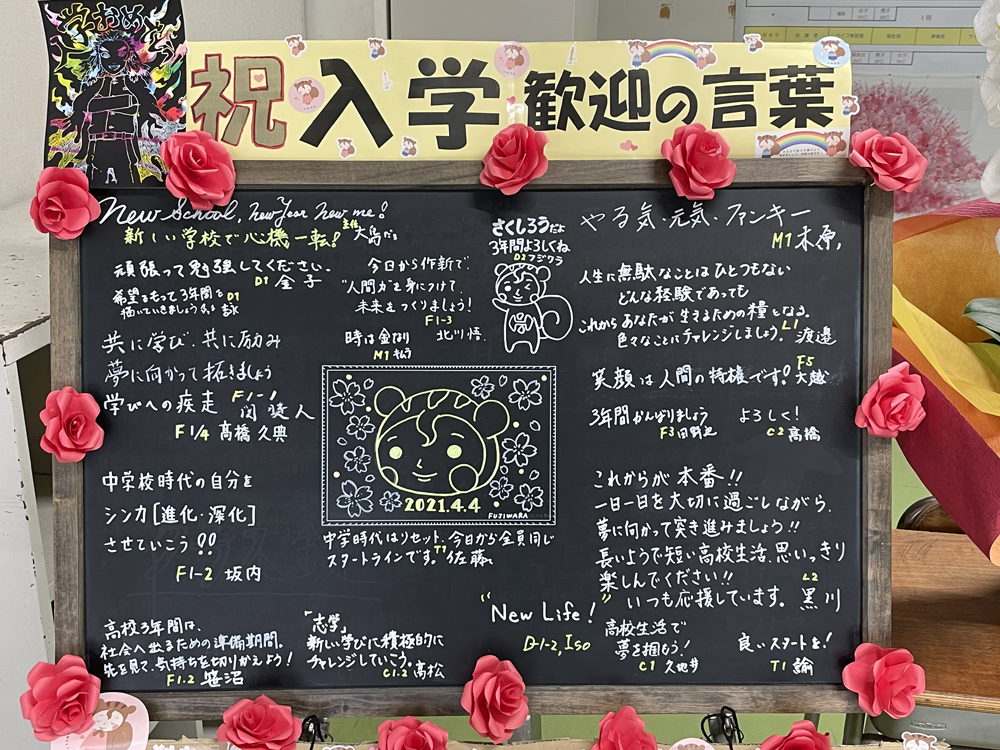 学おめ
祝入学歓迎の言葉
New School, New Year New me!
新しい学校で心機一転!
頑張って勉強してください。
D1 金子
希望をもって3年間を
描いていきましょう
D1
共に学び、共に励み
夢に向かって拓きましょう
F1-1
学びへの疾走
F1/4 高橋久典
中学校時代の自分を
シンカ[進化・深化]
させていこう!!
F1-2 坂内
高校3年間は、
社会へ出るための準備期間。
先を見て、気持ちを切りかえよう!
F1.2 笹沼
今日から作新で、
"人間力"を身につけて、
未来をつくりましょう!
F1-3 北川 悟
時は金なり
M1 キムラ
さくしろうだよ
3年間よろしくね
D2 フジワラ
2021.4.4
FUJIWARA
中学時代はリセット。今日から全員同じ
スタートラインです。T1 佐藤
「志学」
新しい学びに積極的に
チャレンジしていこう。
C1.2 高松
"New Life!"
D-1-2, Iso
やる気・元気・ファンキー
M1 木原
人生に無駄なことはひとつもない
どんな経験であっても
これからあなたが生きるための糧となる。
色々なことにチャレンジしましょう。L1 渡邉
笑顔は人間の特権です! F5 大越
3年間がんばりましょう
F3 田野辺
よろしく!
C2 高橋
これからが本番!!
一日一日を大切に過ごしながら、
夢に向かって突き進みましょう!!
長いようで短い高校生活、思いっきり
楽しんでください!!
いつも応援しています。 L2 黒川
高校生活で
夢を掴もう!
C1 久地井
良いスタートを!
T1 諭